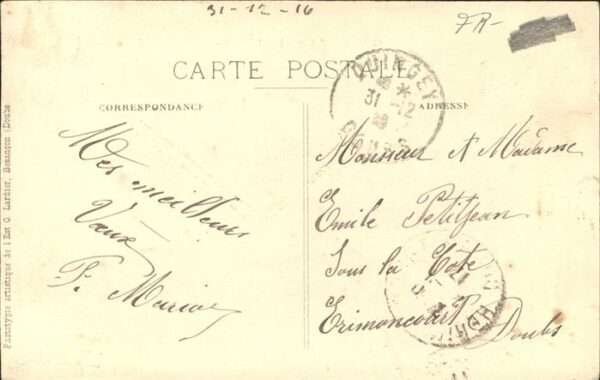 31-12-16
FR-
CARTE POSTALE
CORRESPONDANCE
ADRESSE
QUINGEY
31 -12
DOUBS
Mes meilleurs
Vœux
Monsieur & Madame
Emile Petitjean
Sous la Côte
Erimoncourt Doubs
Phototypie artistique de l'Est C. Lardier, Besançon (Doubs